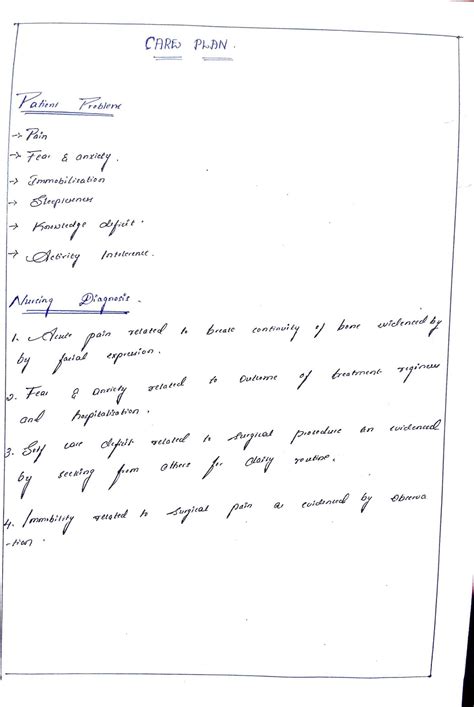 CARE PLAN.
Patient Problem
→ Pain
→ Fear & anxiety.
→ Immobilization
→ Sleeplessness
→ Knowledge deficit.
→ Activity Intolerence.
Nursing Diagnosis.
1. Acute pain related to break continuity of bone evidenced by
by facial expression.
2. Fear & anxiety related to outcome of treatment regimen
and hospitalization.
3. Self care deficit related to surgical procedure as evidenced
by seeking from others for daily routine.
4. Immobility related to surgical pain as evidenced by observa
-tion.